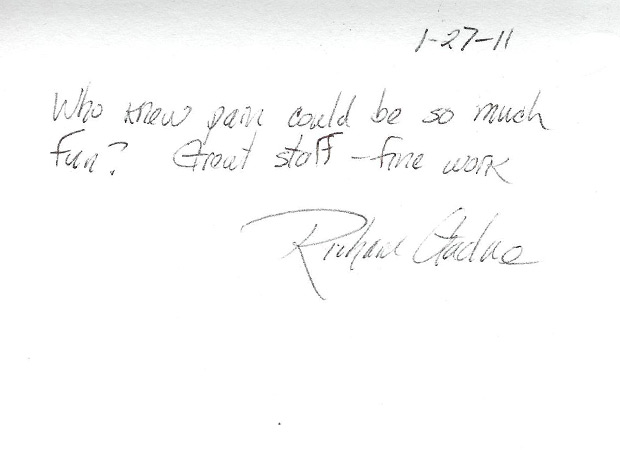 1-27-11
Who knew pain could be so much
fun? Great staff - fine work
Richard